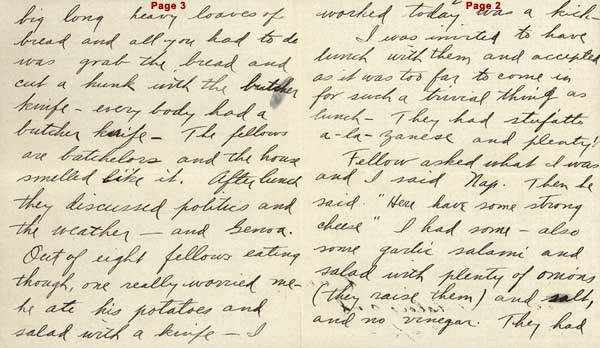 Page 3
big long heavy loaves of
bread and all you had to do
was grab the bread and
cut a hunk with the butcher
knife - every body had a
butcher knife - The fellows
are batchelors and the house
smelled like it. After lunch
they discussed politics and
the weather - and Genoa.
Out of eight fellows eating
though, one really worried me -
he ate his potatoes and
salad with a knife - I
Page 2
worked today was a kick -
I was invited to have
lunch with them and accepted
as it was too far to come in
for such a trivial thing as
lunch - They had stufatto
a-la-zanese and plenty!
Fellow asked what I was
and I said Nap. Then he
said "Here have some strong
cheese" I had some - also
some garlic salami and
salad with plenty of onions
(they raise them) and salt,
and no vinegar. They had